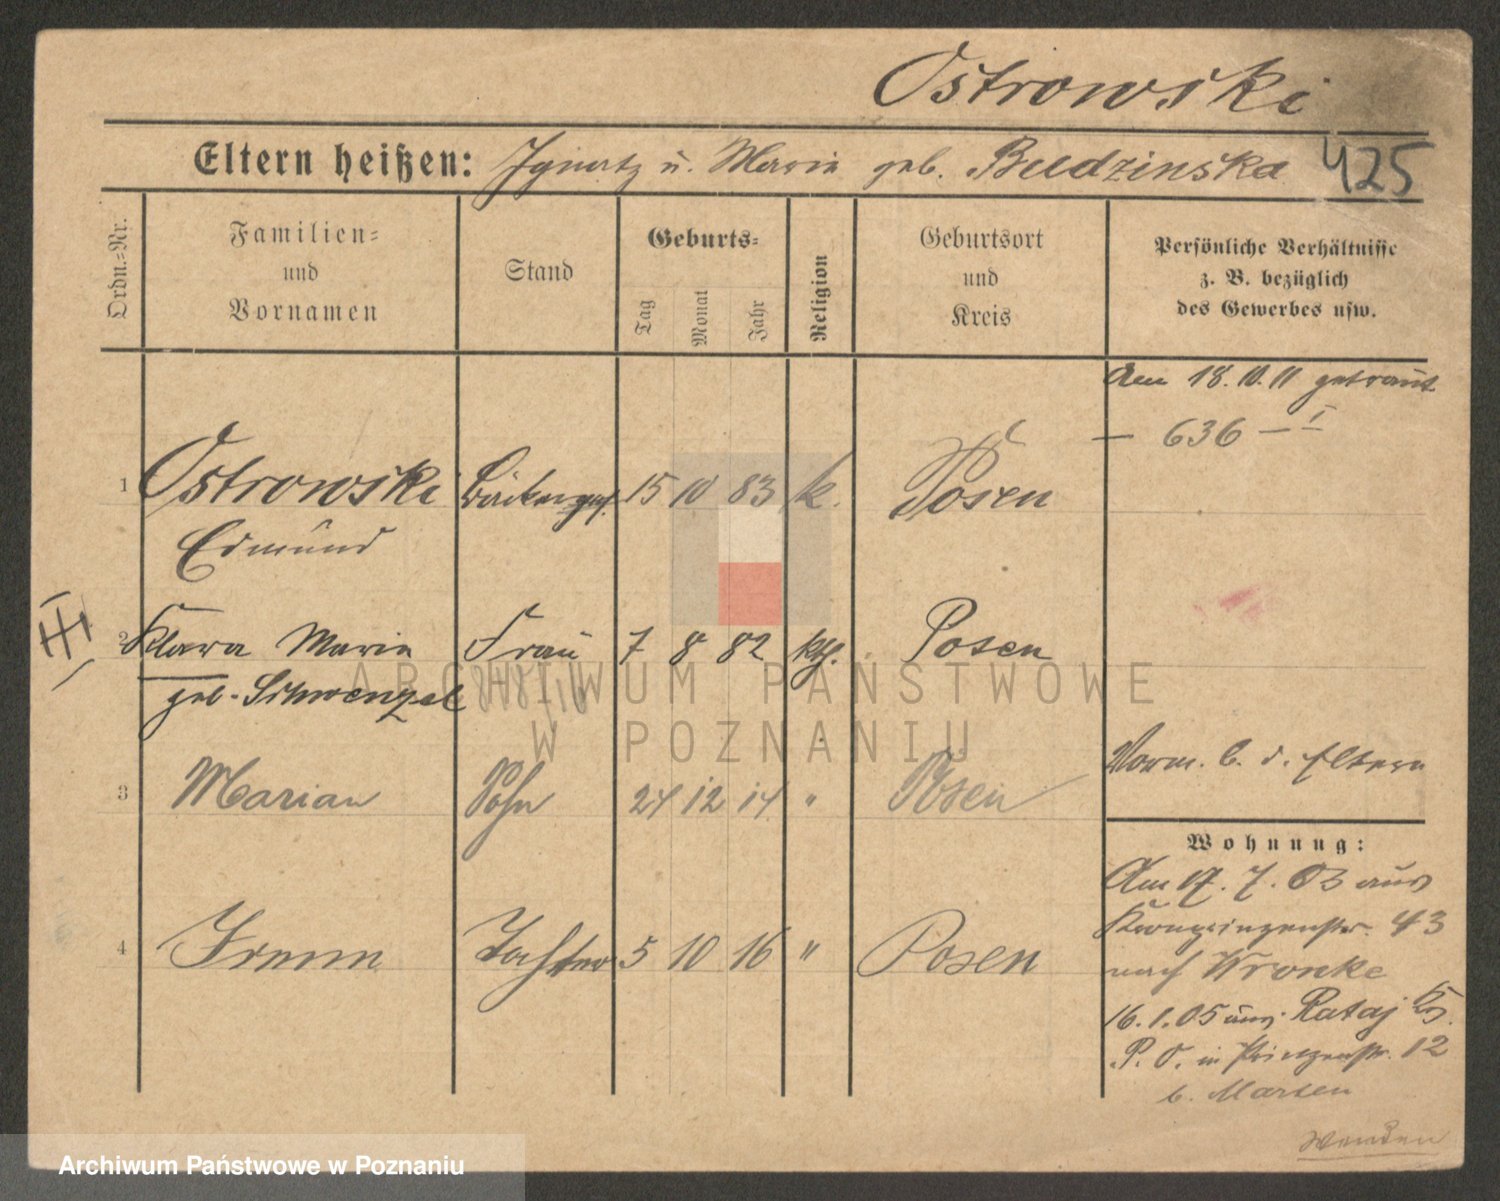 Ostrowski
Eltern heißen: Ignatz u. Maria geb. Budzinska
425
Ordn.=Nr.
Familien=
und
Vornamen
Stand
Geburts=
Tag
Monat
Jahr
Religion
Geburtsort
und
Kreis
Persönliche Verhältnisse
z. B. bezüglich
des Gewerbes usw.
Am 18.10.11 getraut
— 636 — I
1 Ostrowski Bäckerges. 15 10 83 k. Posen
Edmund
2 Klara Maria Frau 7 8 82 kth. Posen
geb. Schwenzel
3 Marian Sohn 24 12 14 " Posen
Vorm. b. d. Eltern
Wohnung:
Am 17. 7. 03 aus
Kronprinzenstr. 43
4 Irene Tochter 5 10 16 " Posen
nach Wronke
16.1.05 aus Rataj Krs.
P. O. in Prinzenstr. 12
b. Marten
Wenden
ARCHIWUM PAŃSTWOWE
W POZNANIU
Archiwum Państwowe w Poznaniu